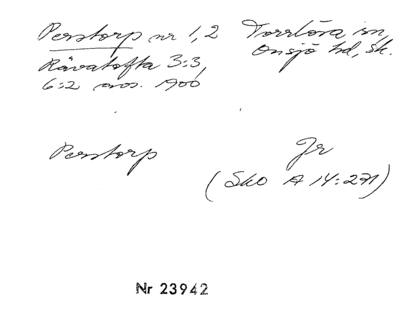 Perstorp nr 1, 2 Torrlösa sn,
Rävatofta 3:3, Onsjö hd, Sk.
6:2 avs. 1900
Perstorp Jr
(Sko A 14:271)
Nr 23942